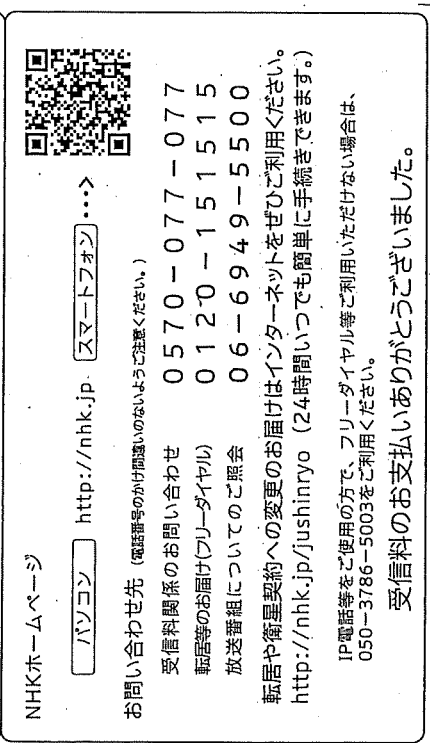 NHKホームページ
パソコン http://nhk.jp スマートフォン •••>
お問い合わせ先 (電話番号のかけ間違いのないようご注意ください。)
受信料関係のお問い合わせ 0570-077-077
転居等のお届け(フリーダイヤル) 0120-151515
放送番組についてのご照会 06-6949-5500
転居や衛星契約への変更のお届けはインターネットをぜひご利用ください。
http://nhk.jp/jushinryo (24時間いつでも簡単に手続きできます。)
IP電話等をご使用の方で、フリーダイヤル等ご利用いただけない場合は、
050-3786-5003をご利用ください。
受信料のお支払いありがとうございました。